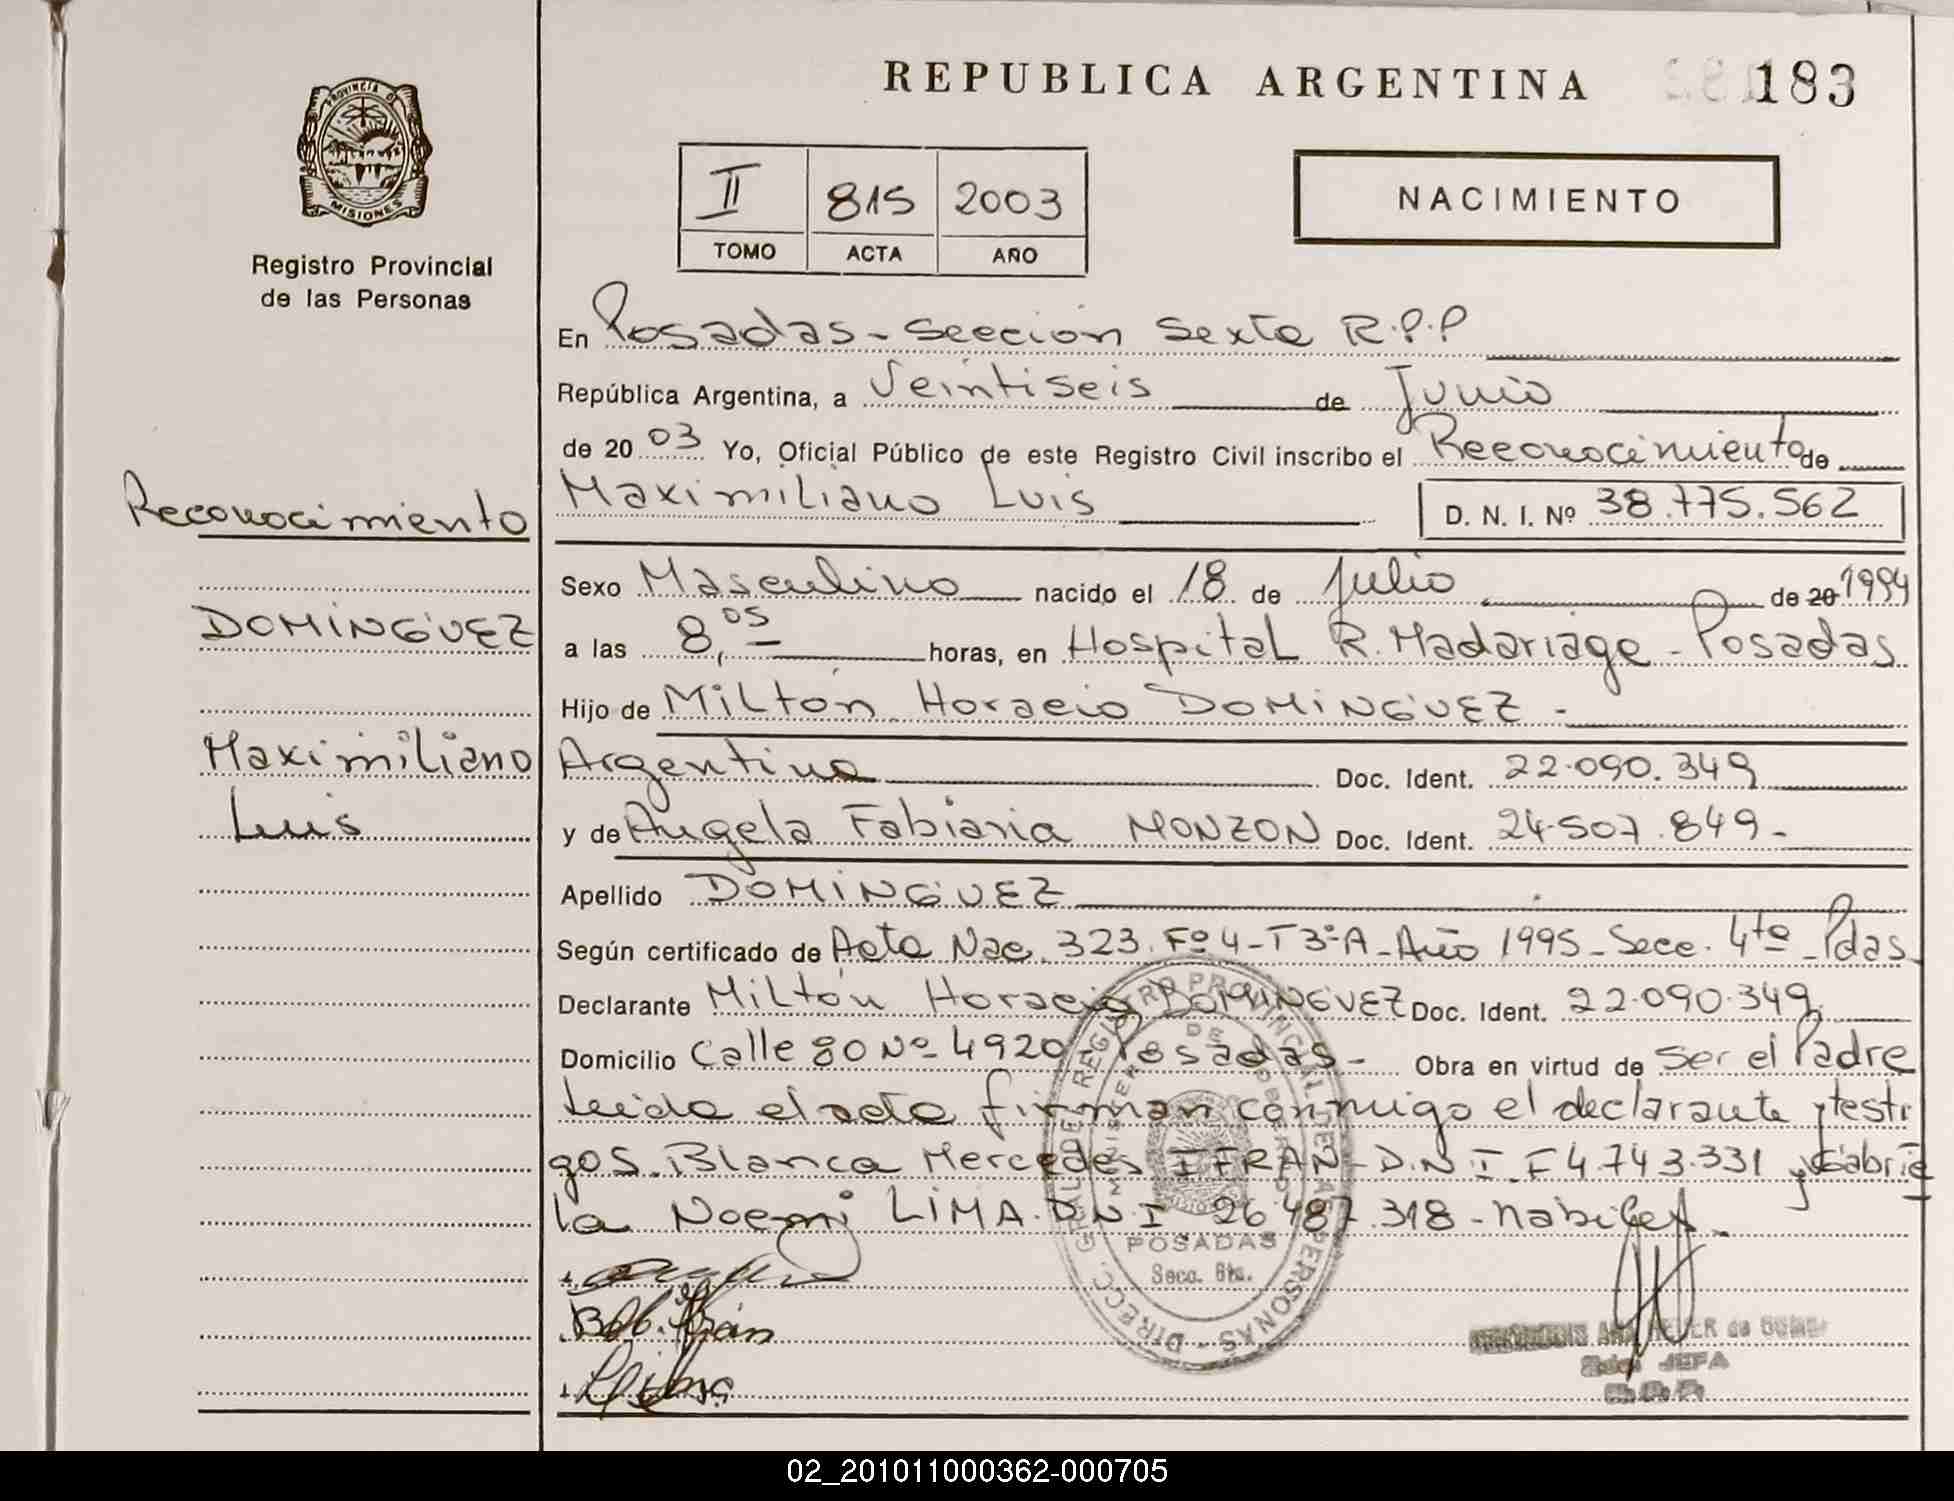 REPUBLICA ARGENTINA 183
PROVINCIA DE
MISIONES
Registro Provincial
de las Personas
II 815 2003
TOMO ACTA AÑO
NACIMIENTO
En Posadas - Sección Sexta R.P.P
República Argentina, a Veintiseis de Junio
de 2003 Yo, Oficial Público de este Registro Civil inscribo el Reconocimiento de
Maximiliano Luis D. N. I. Nº 38.775.562
Reconocimiento
DOMINGUEZ
Maximiliano
Luis
Sexo Masculino nacido el 18 de Julio de 20 1994
a las 8,05 horas, en Hospital R. Madariaga - Posadas
Hijo de Miltón Horacio DOMINGUEZ -
Argentino Doc. Ident. 22.090.349
y de Angela Fabiana MONZON Doc. Ident. 24.507.849-
Apellido DOMINGUEZ
Según certificado de Acta Nac. 323. Fº 4 - T 3º A - Año 1995 - Secc. 4ta - Pdas
Declarante Miltón Horacio DOMINGUEZ Doc. Ident. 22.090.349
Domicilio Calle 80 Nº 4920 Posadas - Obra en virtud de ser el Padre
Leida el acta firman conmigo el declarante y testi
gos. Blanca Mercedes IFRAN - D.N.I. F 4.743.331 y Gabrie
la Noemi LIMA. D.N.I 26.487.318 -
DIRECC. GRAL. DE REGISTRO PROVINCIAL DE LAS PERSONAS
MINISTERIO DE GOBIERNO
POSADAS
Secc. 6ta.
JEFA
02_201011000362-000705